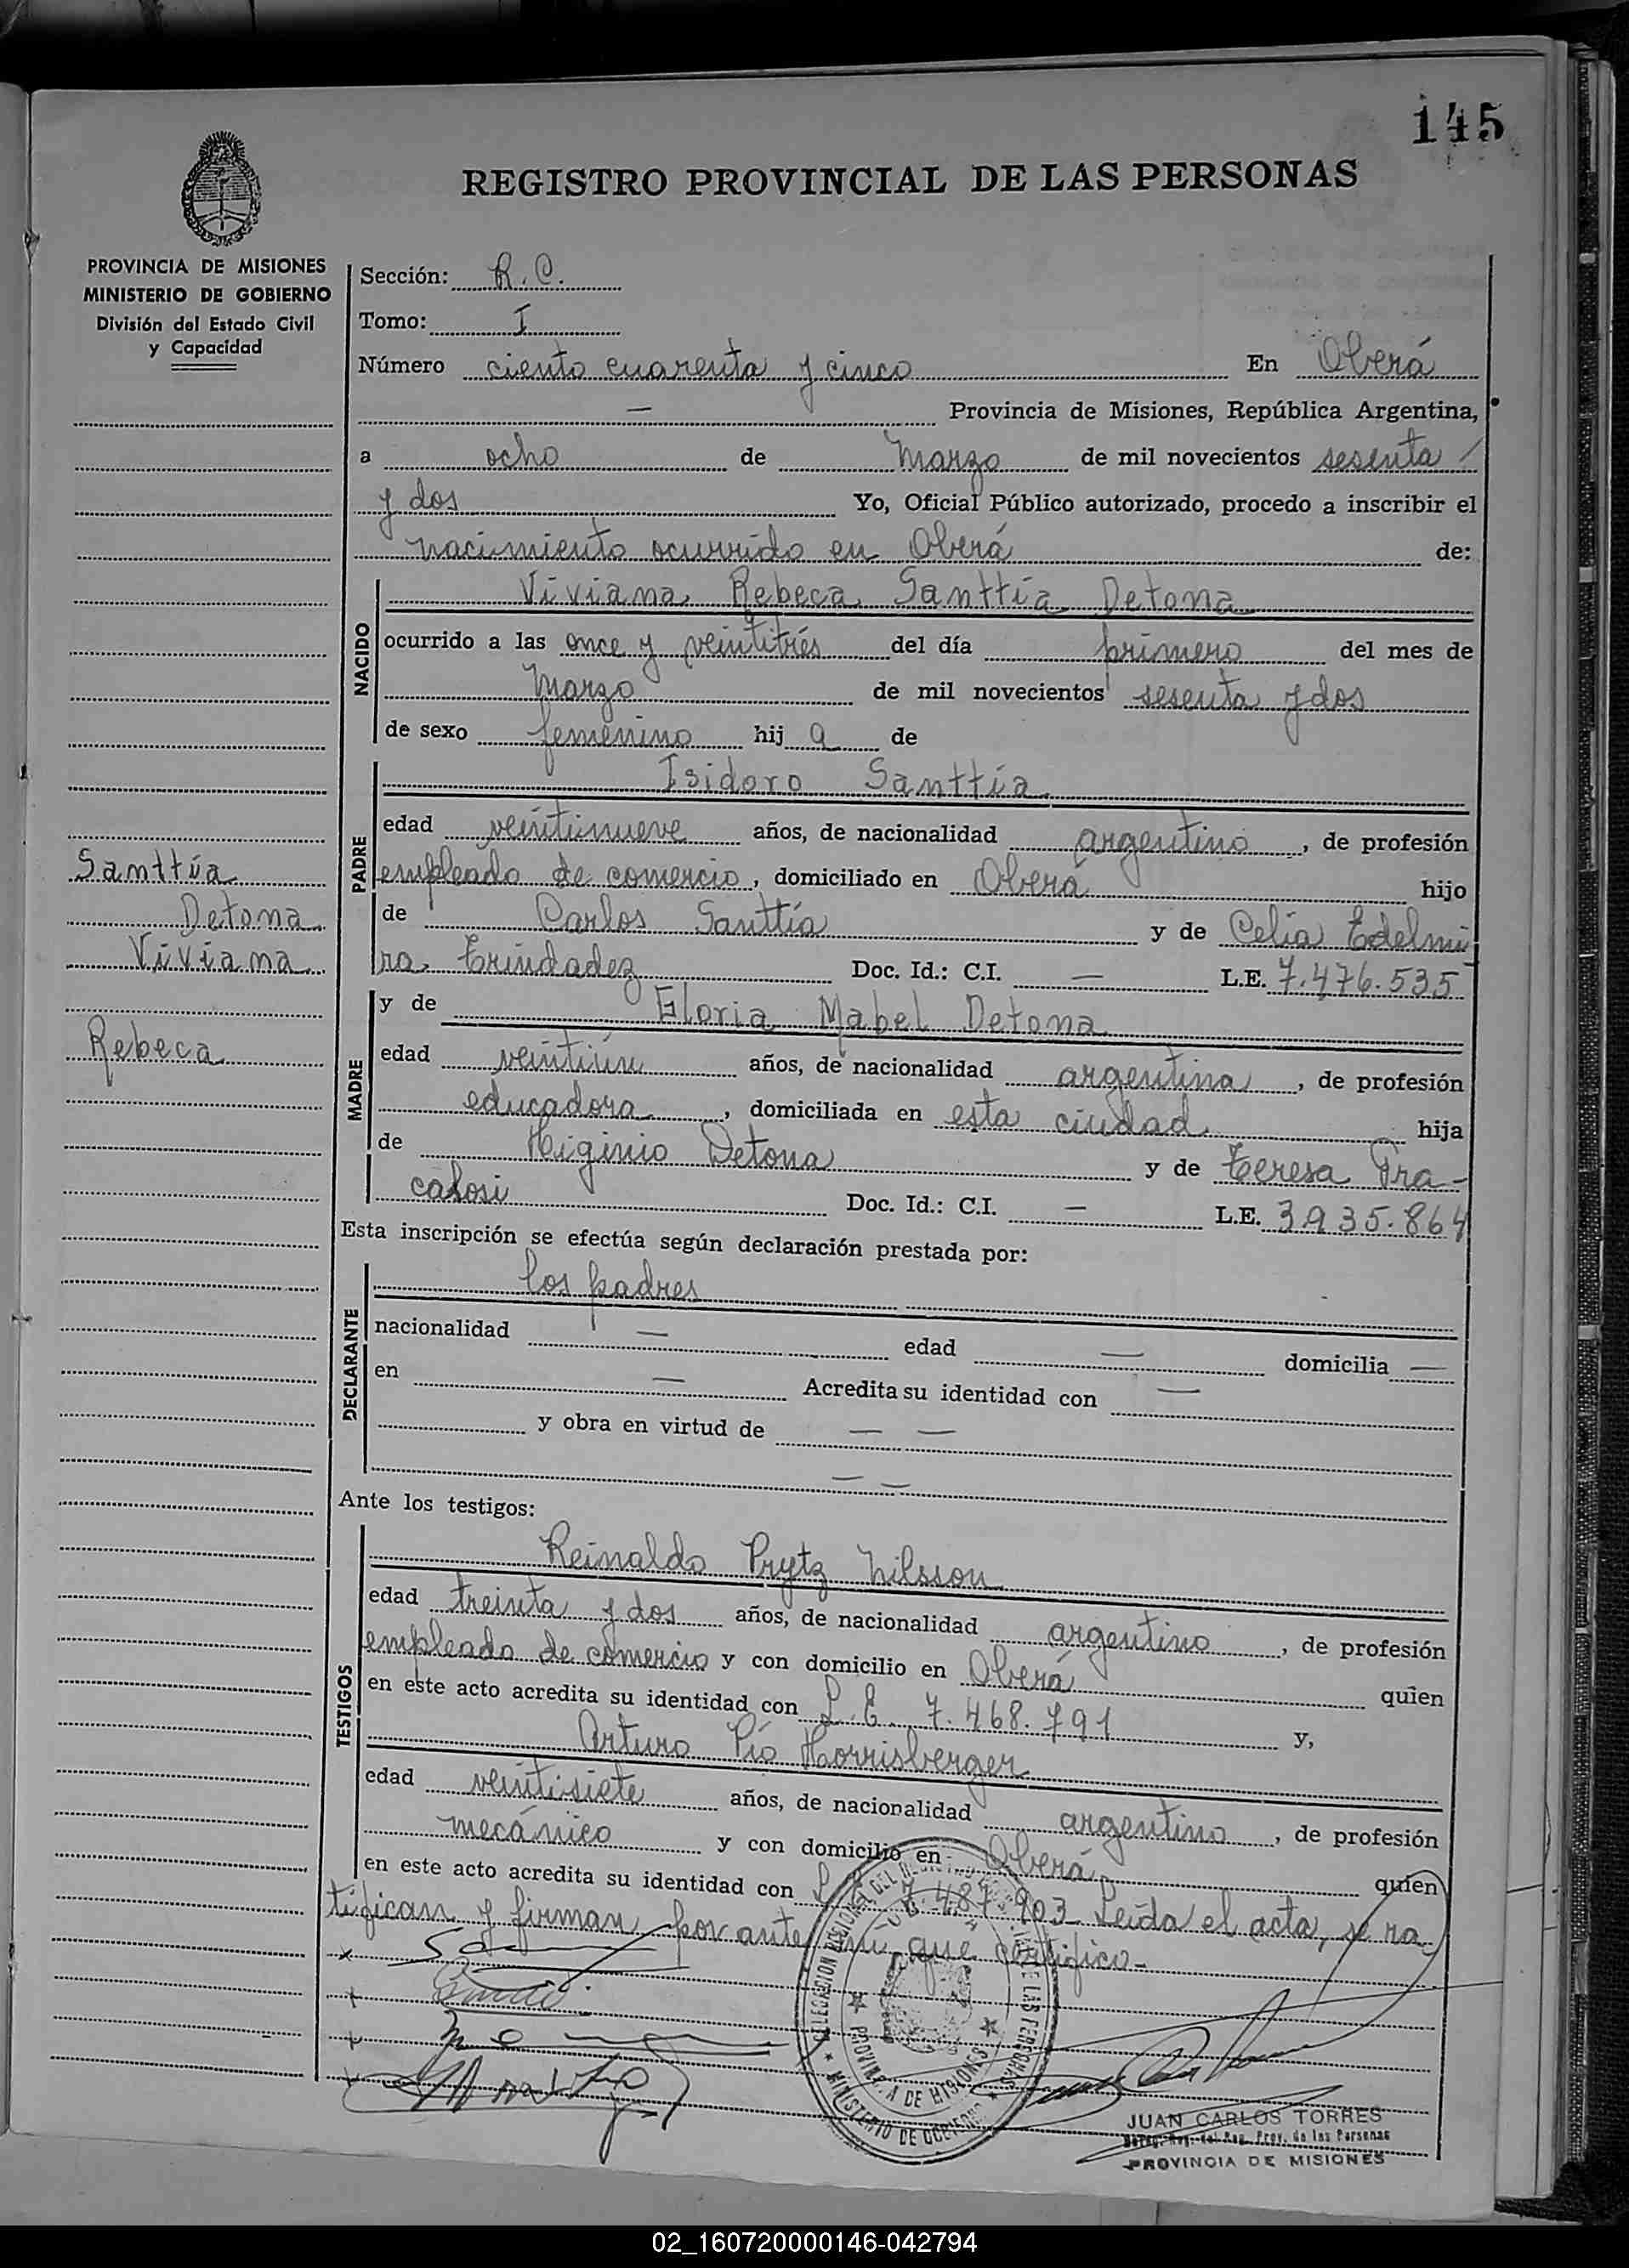 145
REGISTRO PROVINCIAL DE LAS PERSONAS
PROVINCIA DE MISIONES
MINISTERIO DE GOBIERNO
División del Estado Civil
y Capacidad
Sección: R. C.
Tomo: I
Número ciento cuarenta y cinco En Oberá
— Provincia de Misiones, República Argentina,
a ocho de Marzo de mil novecientos sesenta
y dos Yo, Oficial Público autorizado, procedo a inscribir el
nacimiento ocurrido en Oberá de:
NACIDO
Viviana Rebeca Santtía Detona
ocurrido a las once y veintitrés del día primero del mes de
Marzo de mil novecientos sesenta y dos
de sexo femenino hij a de
PADRE
Isidoro Santtía
edad veintinueve años, de nacionalidad argentino, de profesión
empleado de comercio, domiciliado en Oberá hijo
de Carlos Santtía y de Celia Edelmi
ra Trindadez Doc. Id.: C.I. — L.E. 7.476.535
Santtía
Detona
Viviana
Rebeca
MADRE
y de Gloria Mabel Detona
edad veintiún años, de nacionalidad argentina, de profesión
educadora, domiciliada en esta ciudad hija
de Higinio Detona y de Teresa Fra-
casosi Doc. Id.: C.I. — L.E. 3.935.864
Esta inscripción se efectúa según declaración prestada por:
DECLARANTE
los padres
nacionalidad — edad — domicilia —
en — Acredita su identidad con —
y obra en virtud de — —
— —
Ante los testigos:
TESTIGOS
Reinaldo Prytz Nilsson
edad treinta y dos años, de nacionalidad argentino, de profesión
empleado de comercio y con domicilio en Oberá quien
en este acto acredita su identidad con L. E. 7.468.791 y,
Arturo Pío Horrisberger
edad veintisiete años, de nacionalidad argentino, de profesión
mecánico y con domicilio en Oberá quien
en este acto acredita su identidad con 7.487.903 Leída el acta, se ra-
tifican y firman por ante mi, que certifico.-
PROVINCIA DE MISIONES
MINISTERIO DE GOBIERNO
JUAN CARLOS TORRES
Deleg. Reg. del Reg. Prov. de las Personas
PROVINCIA DE MISIONES
02_160720000146-042794